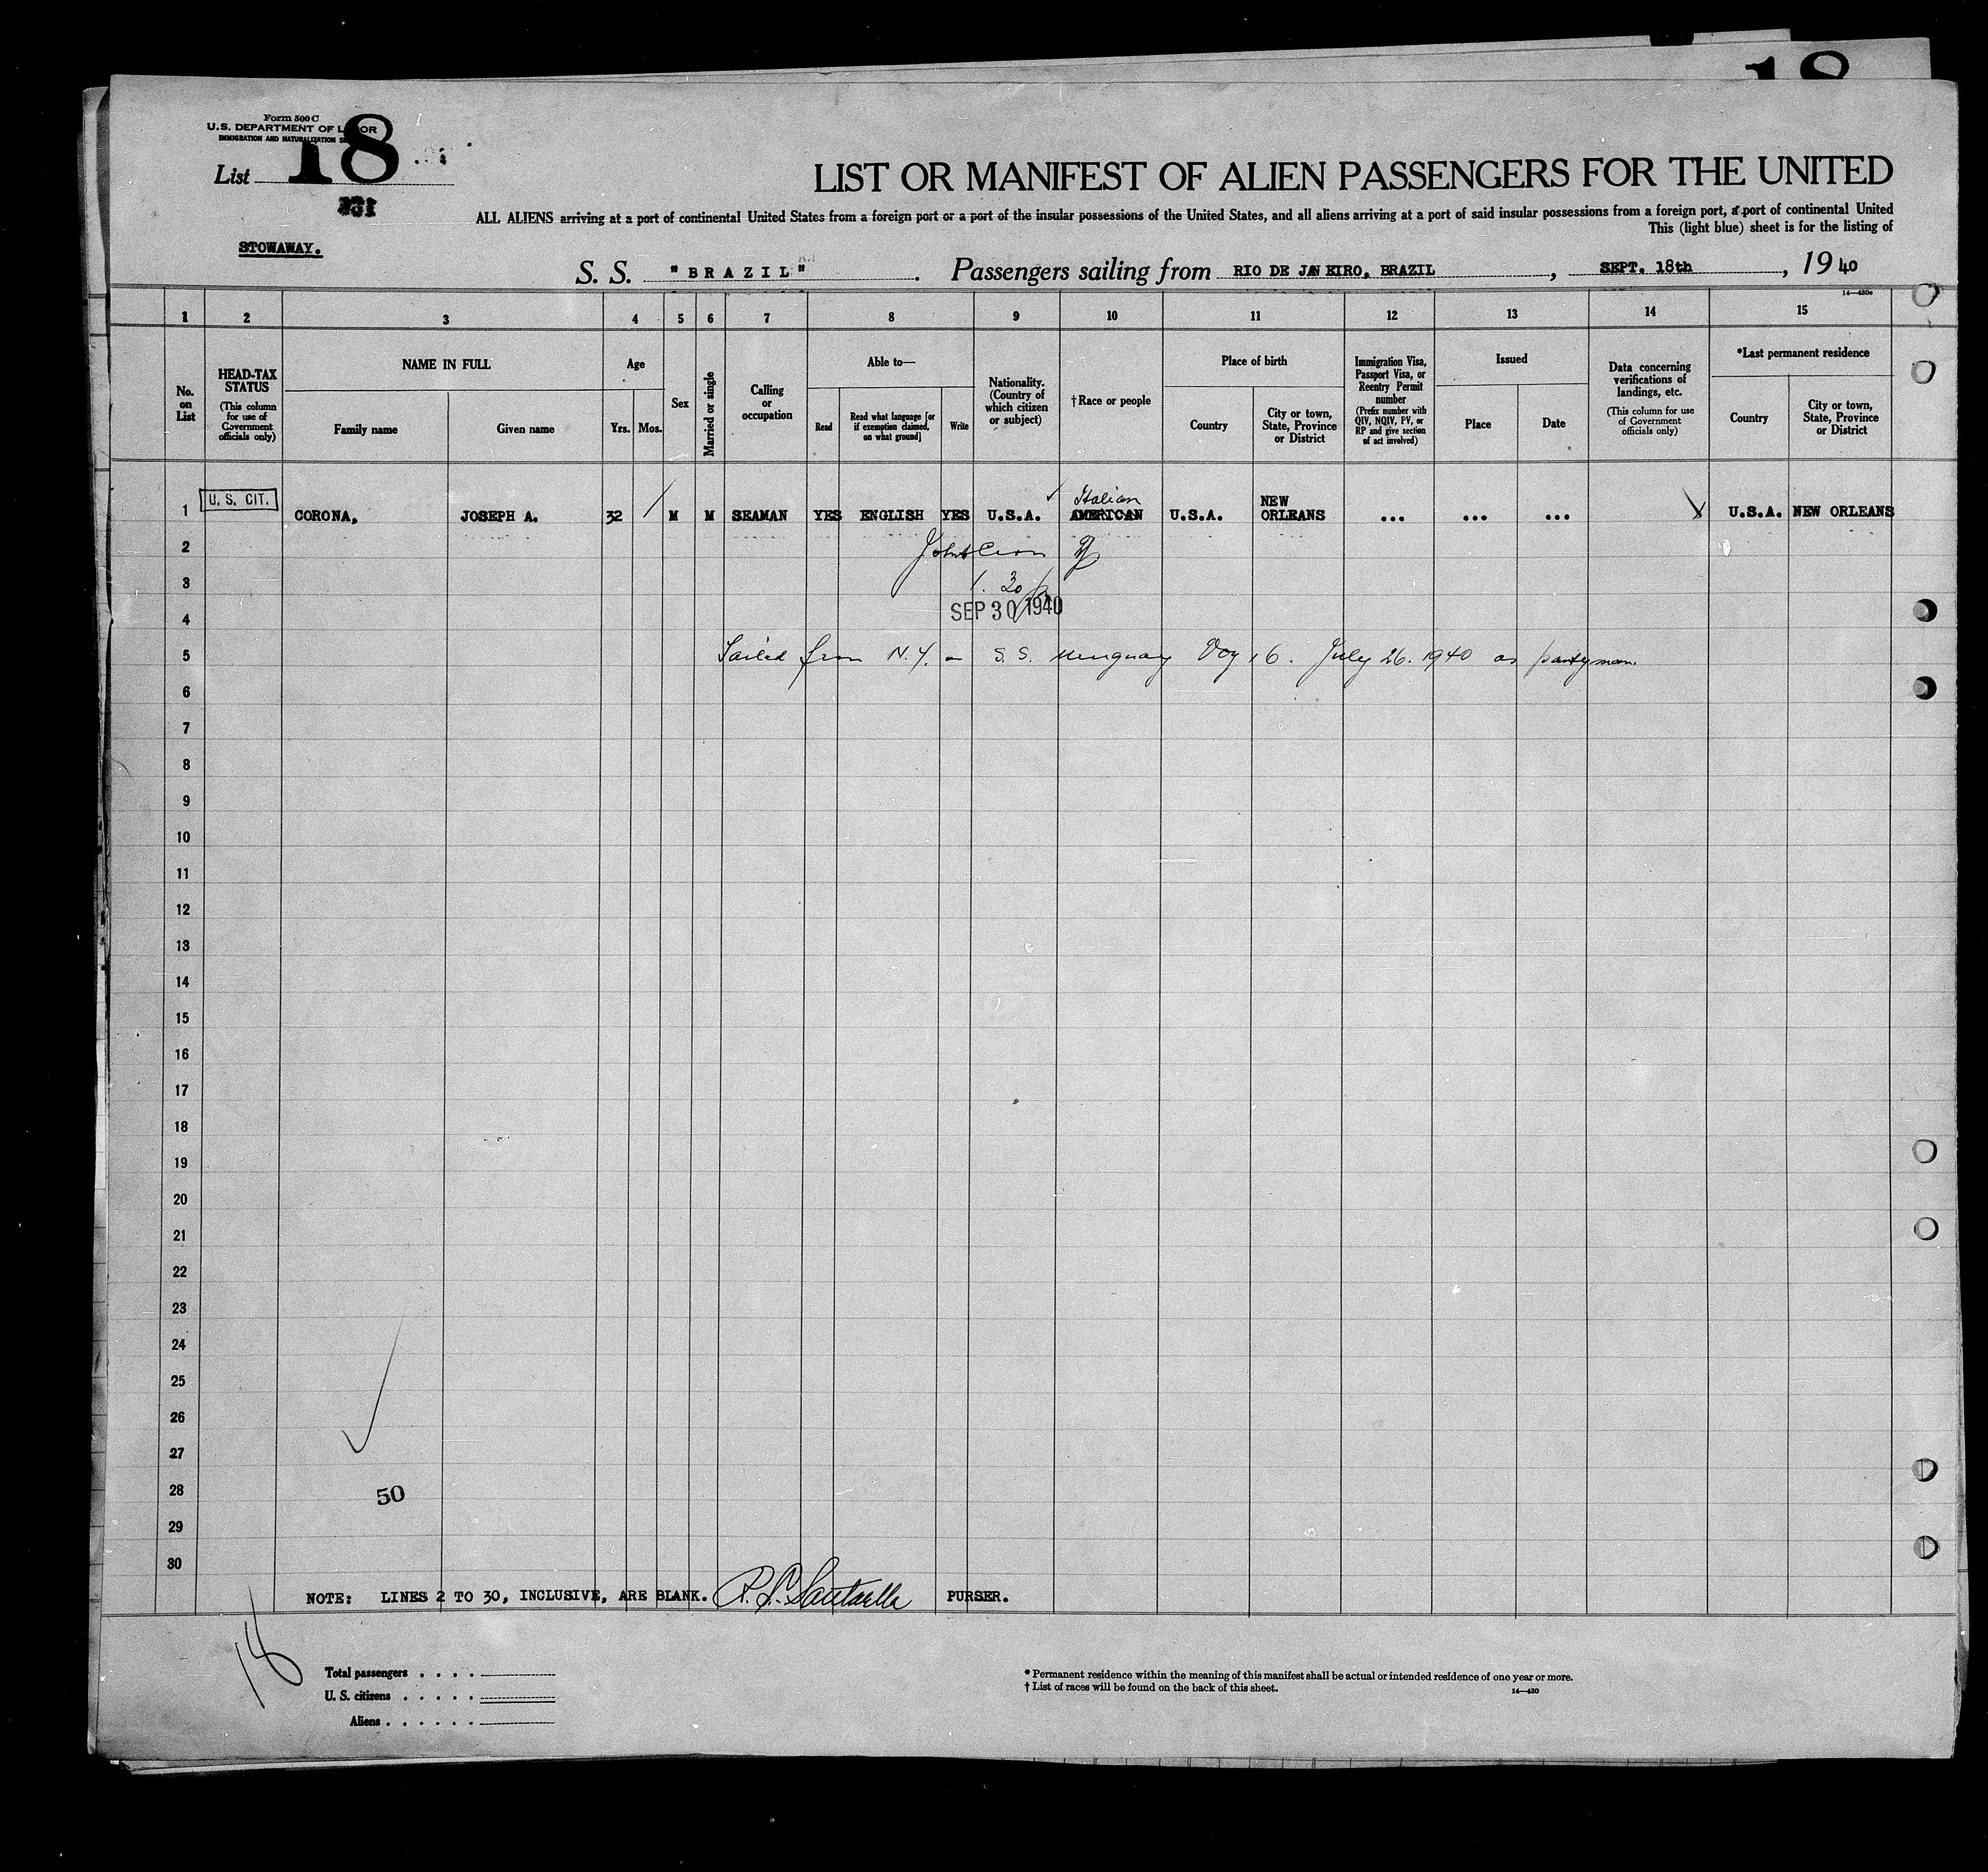 18
Form 500 C
U.S. DEPARTMENT OF LABOR
IMMIGRATION AND NATURALIZATION
List 18
LIST OR MANIFEST OF ALIEN PASSENGERS FOR THE UNITED
ALL ALIENS arriving at a port of continental United States from a foreign port or a port of the insular possessions of the United States, and all aliens arriving at a port of said insular possessions from a foreign port, a port of continental United
This (light blue) sheet is for the listing of
STOWAWAY.
S. S. "BRAZIL" . Passengers sailing from RIO DE JANEIRO, BRAZIL , SEPT. 18th , 1940
14—430c
1 2 3 4 5 6 7 8 9 10 11 12 13 14 15
No. on List
HEAD-TAX STATUS (This column for use of Government officials only)
NAME IN FULL
Family name Given name
Age
Yrs. Mos.
Sex
Married or single
Calling or occupation
Able to—
Read Read what language [or if exemption claimed, on what ground] Write
Nationality. (Country of which citizen or subject)
†Race or people
Place of birth
Country City or town, State, Province or District
Immigration Visa, Passport Visa, or Reentry Permit number (Prefix number with QIV, NQIV, PV, or RP and give section of act involved)
Issued
Place Date
Data concerning verifications of landings, etc. (This column for use of Government officials only)
*Last permanent residence
Country City or town, State, Province or District
U. S. CIT.
Italian
1 CORONA, JOSEPH A. 32 M M SEAMAN YES ENGLISH YES U.S.A. AMERICAN U.S.A. NEW ORLEANS ... ... ... U.S.A. NEW ORLEANS
2
3 1.30
4 SEP 30 1940
5 Sailed from N.Y. on S.S. Uruguay Voy 16. July 26. 1940 as pantryman.
6
7
8
9
10
11
12
13
14
15
16
17
18
19
20
21
22
23
24
25
26
27
28 50
29
30
NOTE: LINES 2 TO 30, INCLUSIVE, ARE BLANK. PURSER.
18
Total passengers . . . .
U. S. citizens . . . . .
Aliens . . . . . .
* Permanent residence within the meaning of this manifest shall be actual or intended residence of one year or more.
† List of races will be found on the back of this sheet.
14—430